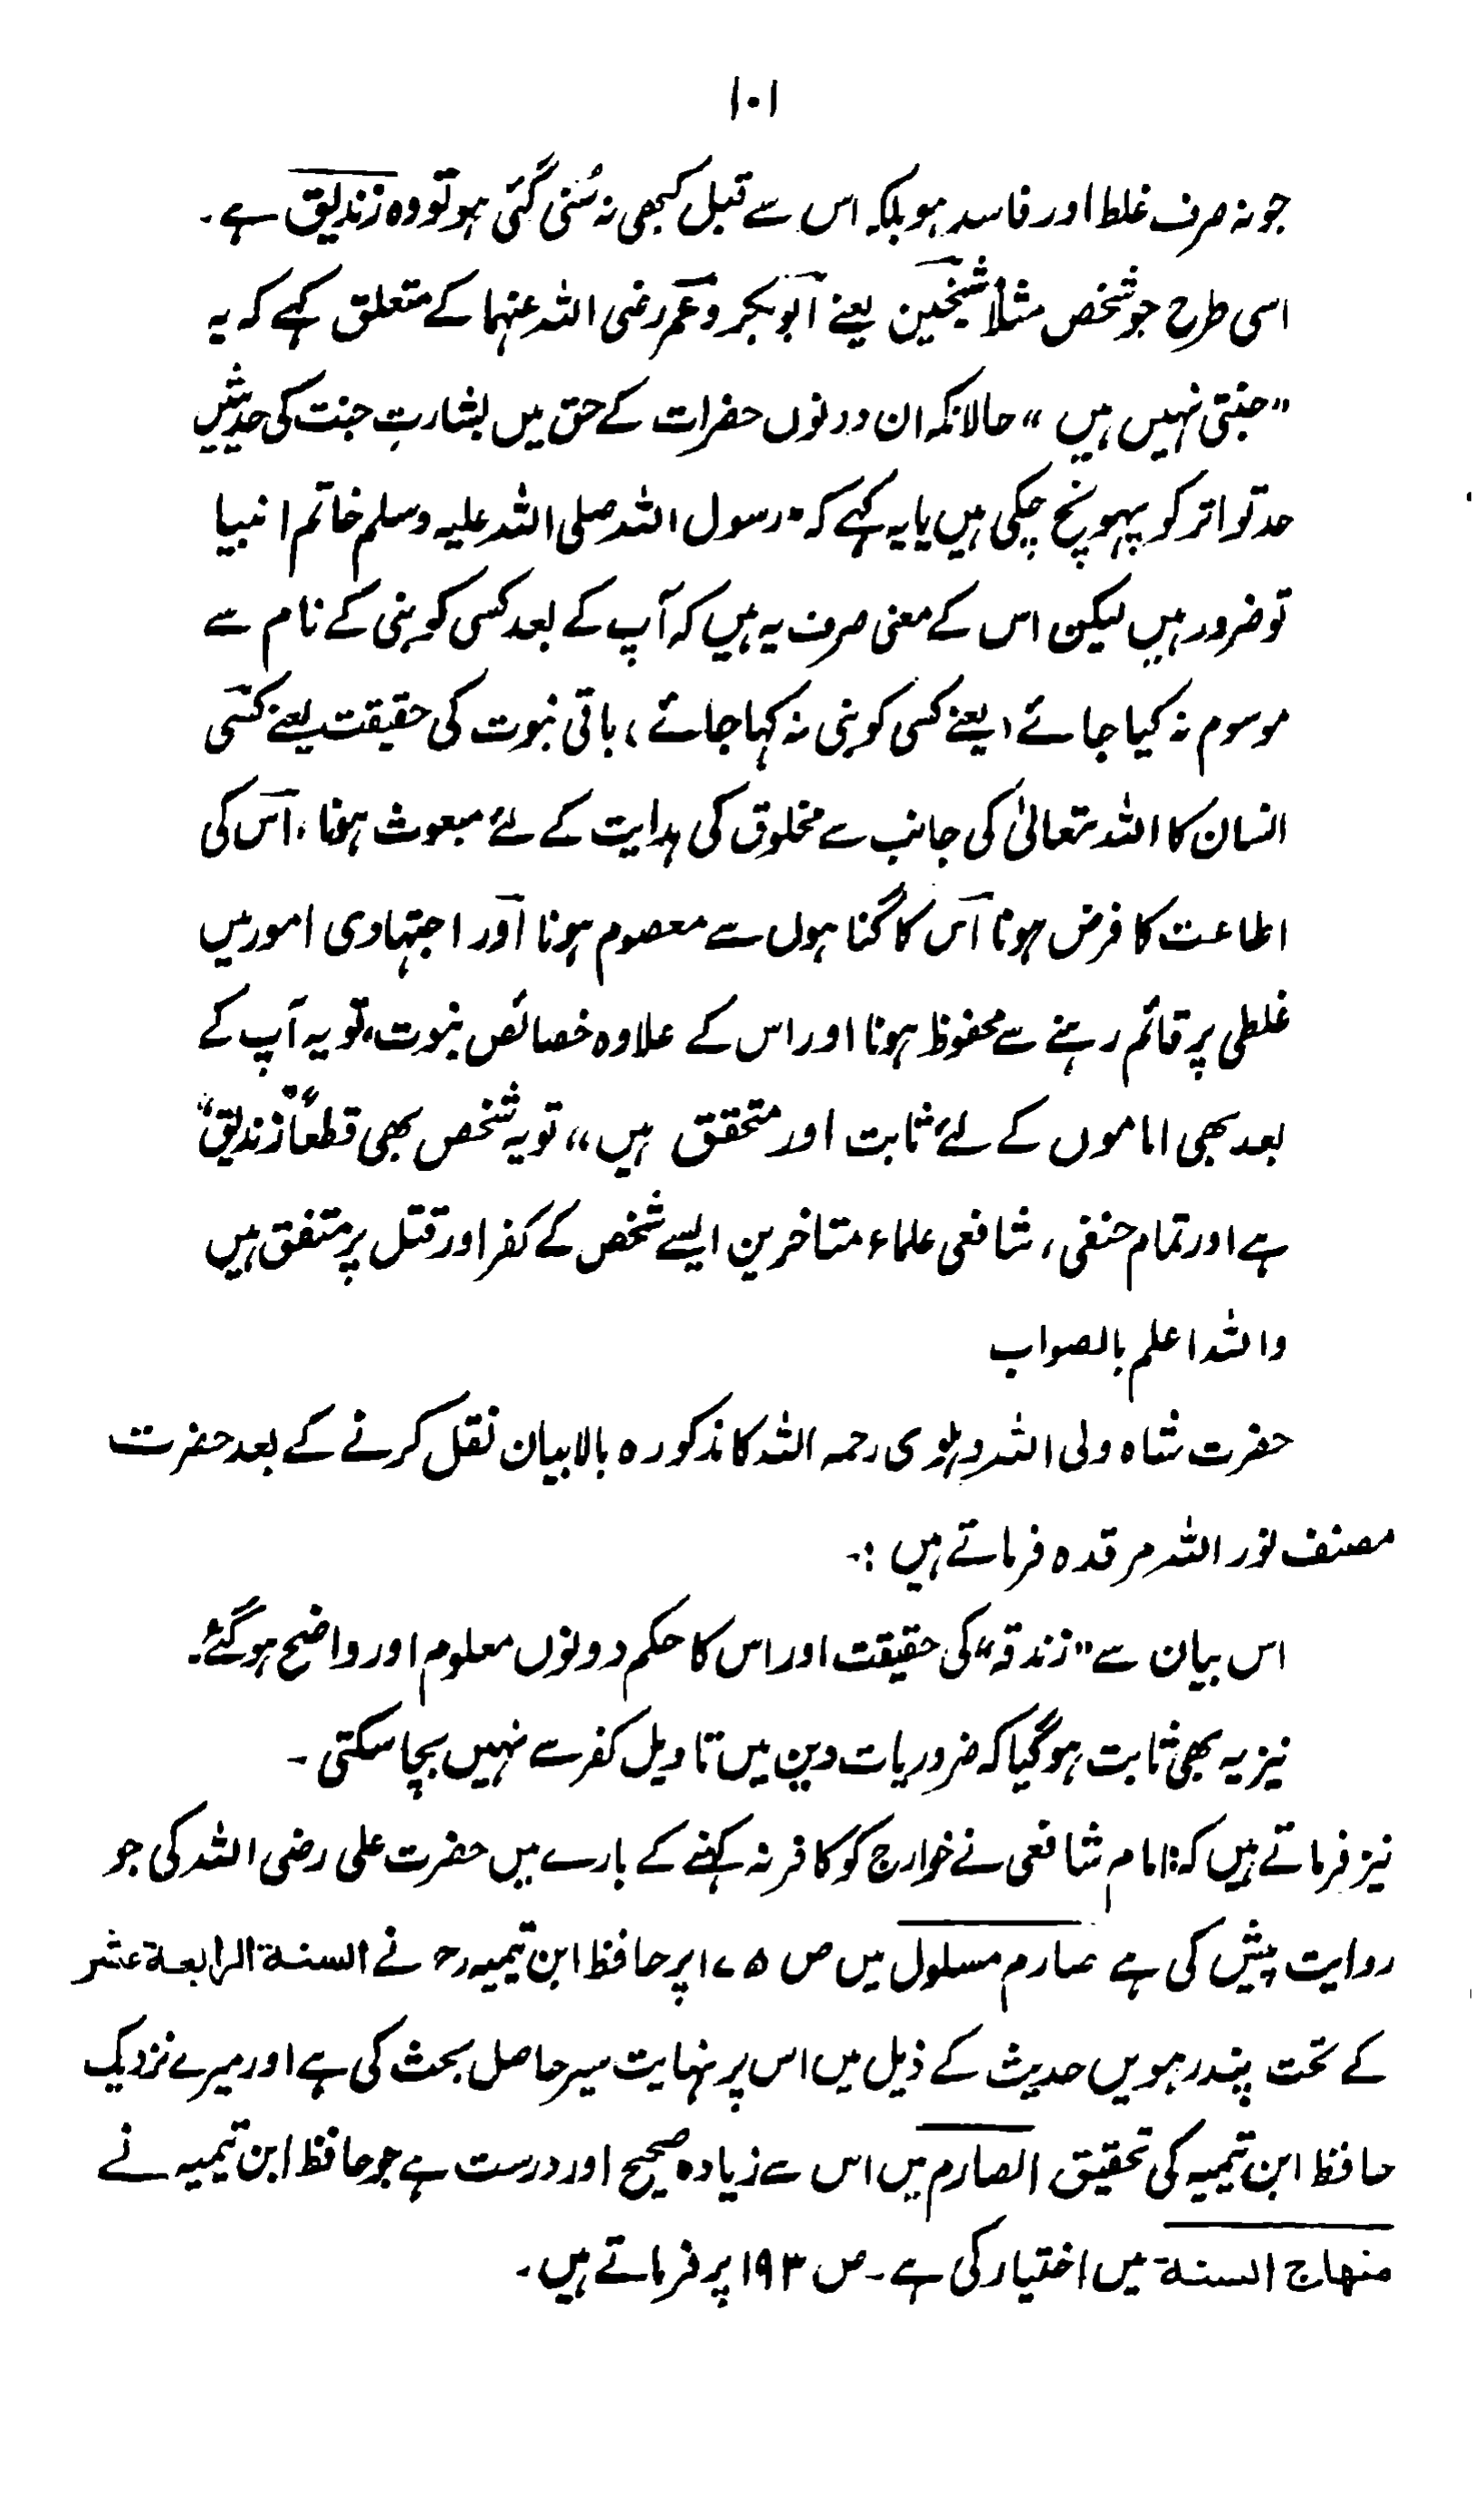 ۱۰۱
جو نہ صرف غلط اور فاسد ہو بلکہ اس سے قبل کبھی نہ سُنی گئی ہو تو وہ زندیق ہے۔
اسی طرح جو شخص مثلاً شیخین یعنے ابوبکر و عمر رضی اللہ عنہما کے متعلق کہے کہ یہ
"جنتی نہیں ہیں" حالانکہ ان دونوں حضرات کے حق میں بشارتِ جنت کی حدیثیں
حد تواتر کو پہونچ چکی ہیں یا یہ کہے کہ "رسول اللہ صلی اللہ علیہ وسلم خاتم انبیا
تو ضرور ہیں لیکن اس کے معنی صرف یہ ہیں کہ آپ کے بعد کسی کو نبی کے نام سے
موسوم نہ کیا جائے یعنے کسی کو نبی نہ کہا جائے، باقی نبوت کی حقیقت یعنے کسی
انسان کا اللہ تعالیٰ کی جانب سے مخلوق کی ہدایت کے لئے مبعوث ہونا، اس کی
اطاعت کا فرض ہونا اس کا گناہوں سے معصوم ہونا اور اجتہادی امور میں
غلطی پر قائم رہنے سے محفوظ ہونا اور اس کے علاوہ خصائص نبوت، تو یہ آپ کے
بعد بھی اماموں کے لئے ثابت اور متحقق ہیں" تو یہ شخص بھی قطعاً "زندیق"
ہے اور تمام حنفی، شافعی علماء متاخرین ایسے شخص کے کفر اور قتل پر متفق ہیں
واللہ اعلم بالصواب
حضرت شاہ ولی اللہ دہلوی رحمہ اللہ کا مذکورہ بالا بیان نقل کرنے کے بعد حضرت
مصنف نور اللہ مرقدہ فرماتے ہیں :۔
اس بیان سے "زندقہ" کی حقیقت اور اس کا حکم دونوں معلوم اور واضح ہو گئے۔
نیز یہ بھی ثابت ہو گیا کہ ضروریات دین میں تاویل کفر سے نہیں بچا سکتی۔
نیز فرماتے ہیں کہ: امام شافعی نے خوارج کو کافر نہ کہنے کے بارے میں حضرت علی رضی اللہ کی جو
روایت پیش کی ہے صارم مسلول میں ص ۱۷۵ پر حافظ ابن تیمیہ رح نے السنة الرابعة عشر
کے تحت پندرہویں حدیث کے ذیل میں اس پر نہایت سیر حاصل بحث کی ہے اور میرے نزدیک
حافظ ابن تیمیہ کی تحقیق الصارم میں اس سے زیادہ صحیح اور درست ہے جو حافظ ابن تیمیہ نے
منھاج السنة میں اختیار کی ہے۔ ص ۱۹۳ پر فرماتے ہیں۔